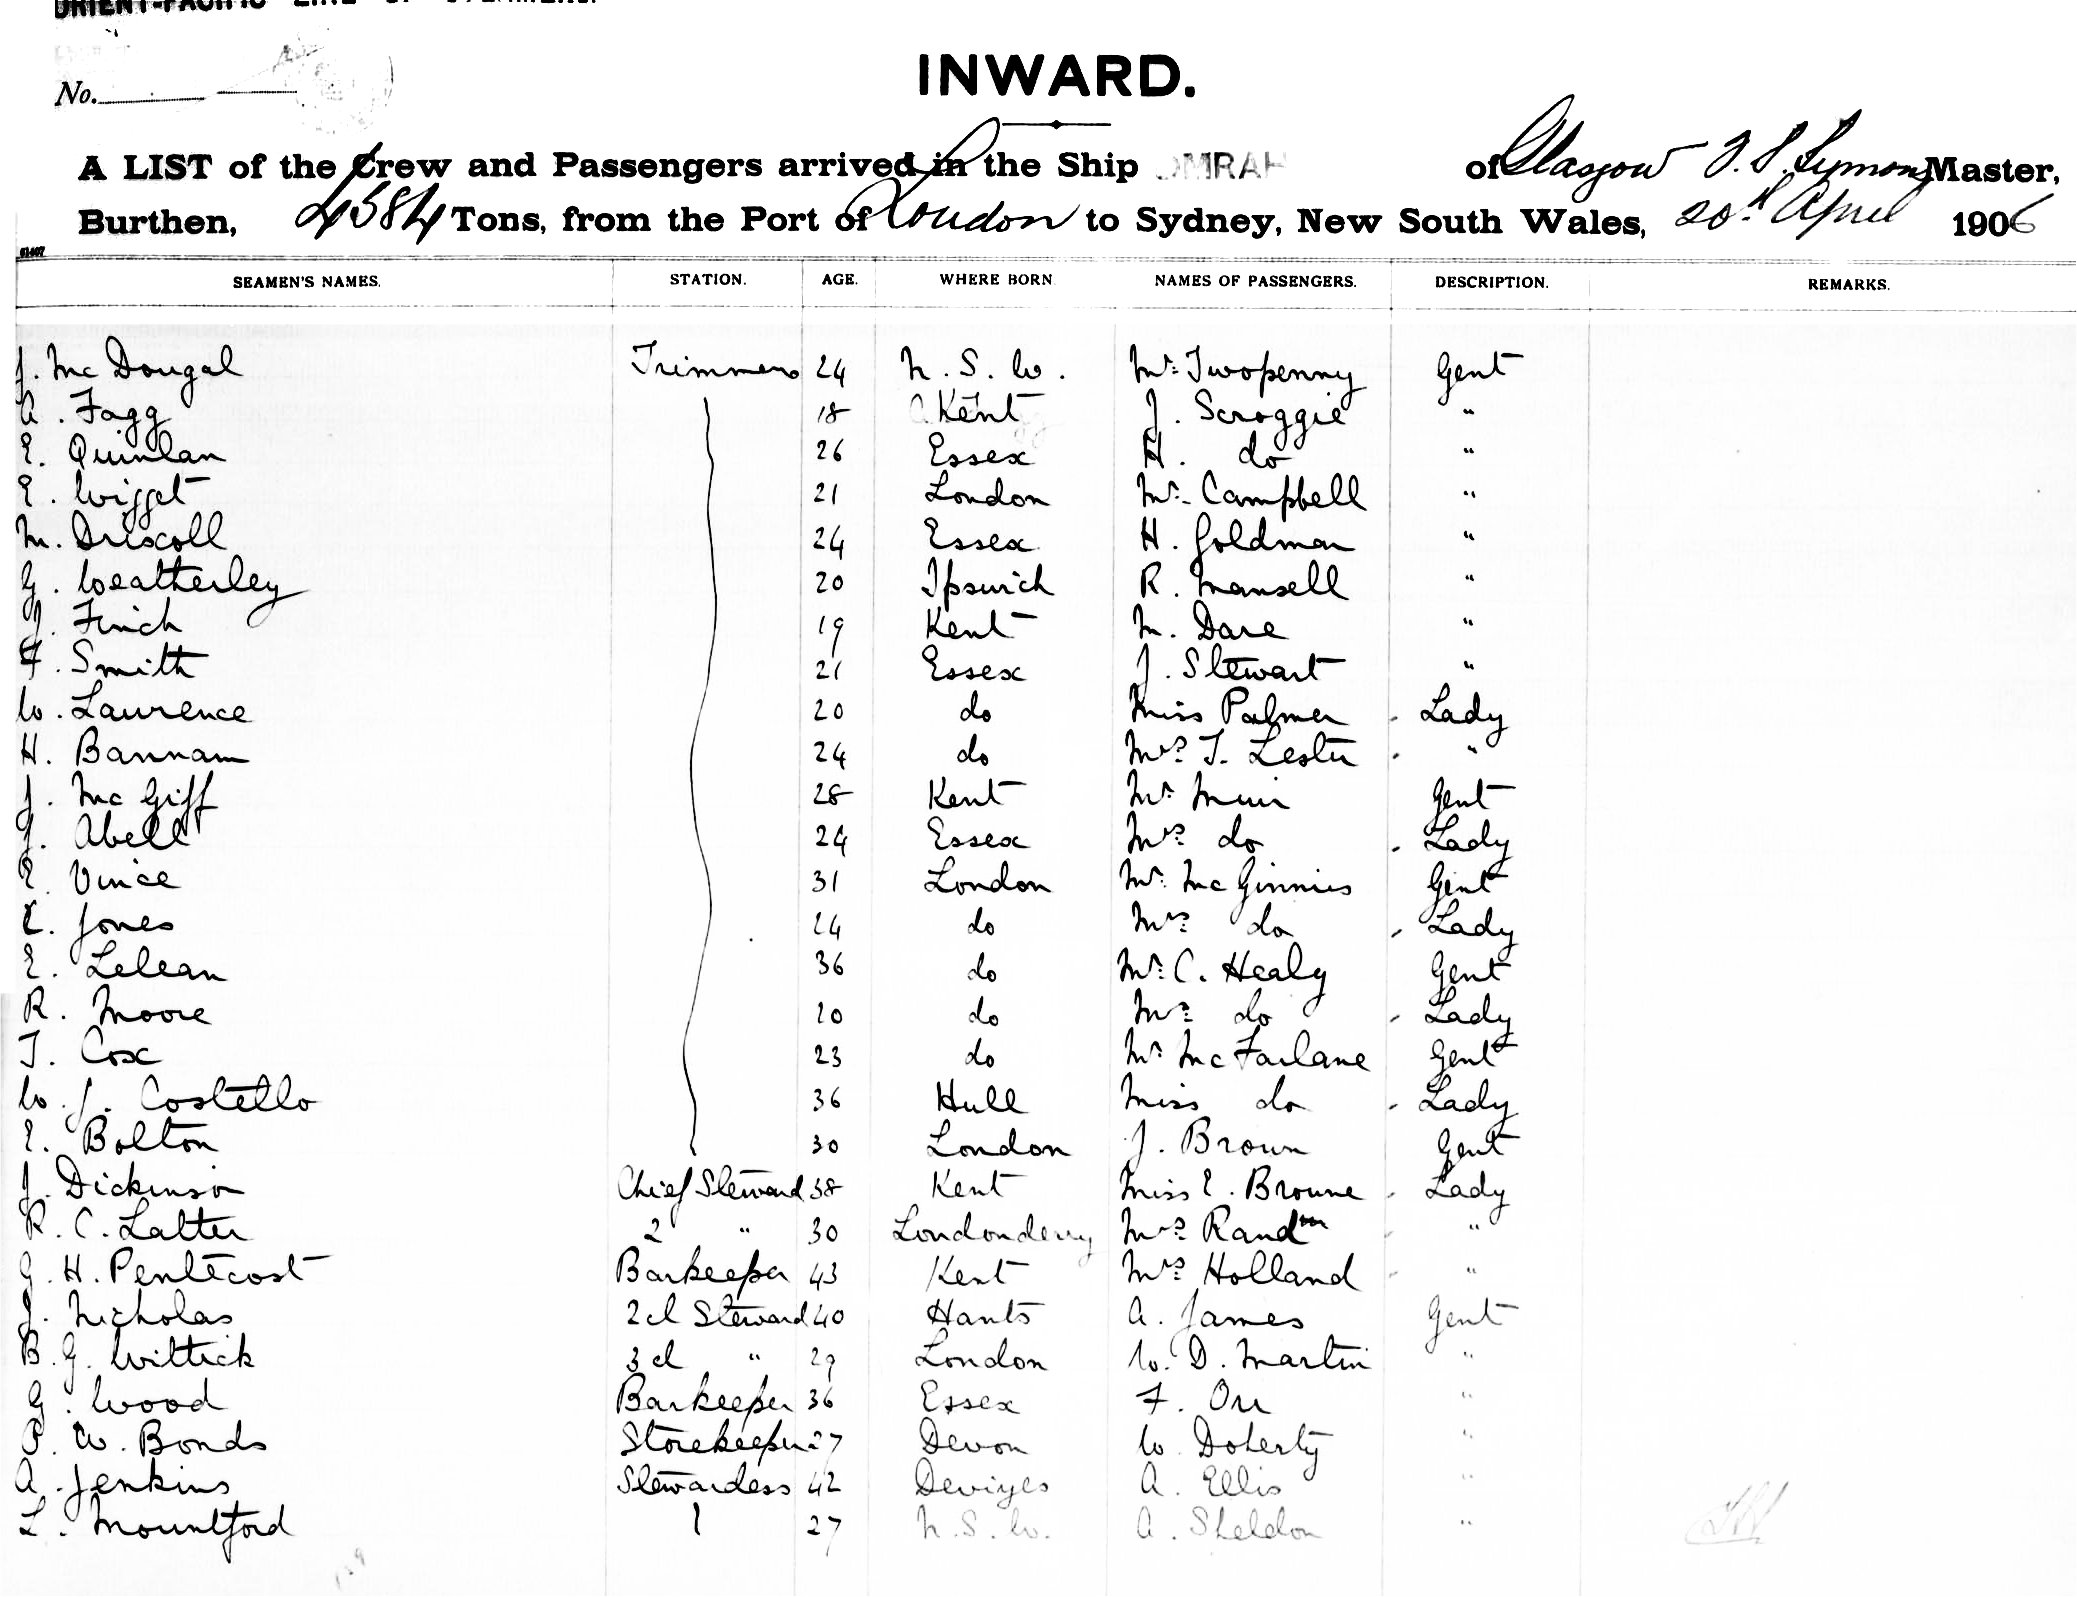 ORIENT-PACIFIC LINE OF STEAMERS.
No.
INWARD.
A LIST of the Crew and Passengers arrived in the Ship OMRAH of Glasgow Master,
Burthen, 4584 Tons, from the Port of London to Sydney, New South Wales, 20th April 1906
SEAMEN'S NAMES. STATION. AGE. WHERE BORN NAMES OF PASSENGERS. DESCRIPTION. REMARKS.
J. McDougal Trimmers 24 N.S.W. Mr. Twopenny Gent
A. Fagg 18 Kent J. Scroggie "
E. Quinlan 26 Essex H. do "
E. Wigget 21 London Mr. Campbell "
M. Driscoll 24 Essex H. Goldman "
G. Weatherley 20 Ipswich R. Mansell "
J. Finch 19 Kent M. Dare "
F. Smith 21 Essex J. Stewart "
W. Laurence 20 do Miss Palmer Lady
H. Bannam 24 do Mrs. T. Lester "
J. McGiff 28 Kent Mr. Muir Gent
J. Abell 24 Essex Mrs. do Lady
E. Vince 31 London Mr. McGinnies Gent
E. Jones 24 do Mrs. do Lady
E. Lelean 36 do Mr. C. Healy Gent
R. Moore 20 do Mrs. do Lady
T. Cox 23 do Mr. McFarlane Gent
W. J. Costello 36 Hull Miss do Lady
E. Bolton 30 London J. Brown Gent
J. Dickinson Chief Steward 38 Kent Miss E. Browne Lady
R. C. Latter 2 " 30 Londonderry Mrs. Rand "
G. H. Pentecost Barkeeper 43 Kent Mrs. Holland "
J. Nicholas 2cl Steward 40 Hants A. James Gent
B. G. Wittick 3cl " 29 London W. D. Martin "
G. Wood Barkeeper 36 Essex F. Orr "
P. W. Bonds Storekeeper 27 Devon W. Doherty "
A. Jenkins Stewardess 42 Devizes A. Ellis "
L. Mountford 27 N.S.W. A. Sheldon "